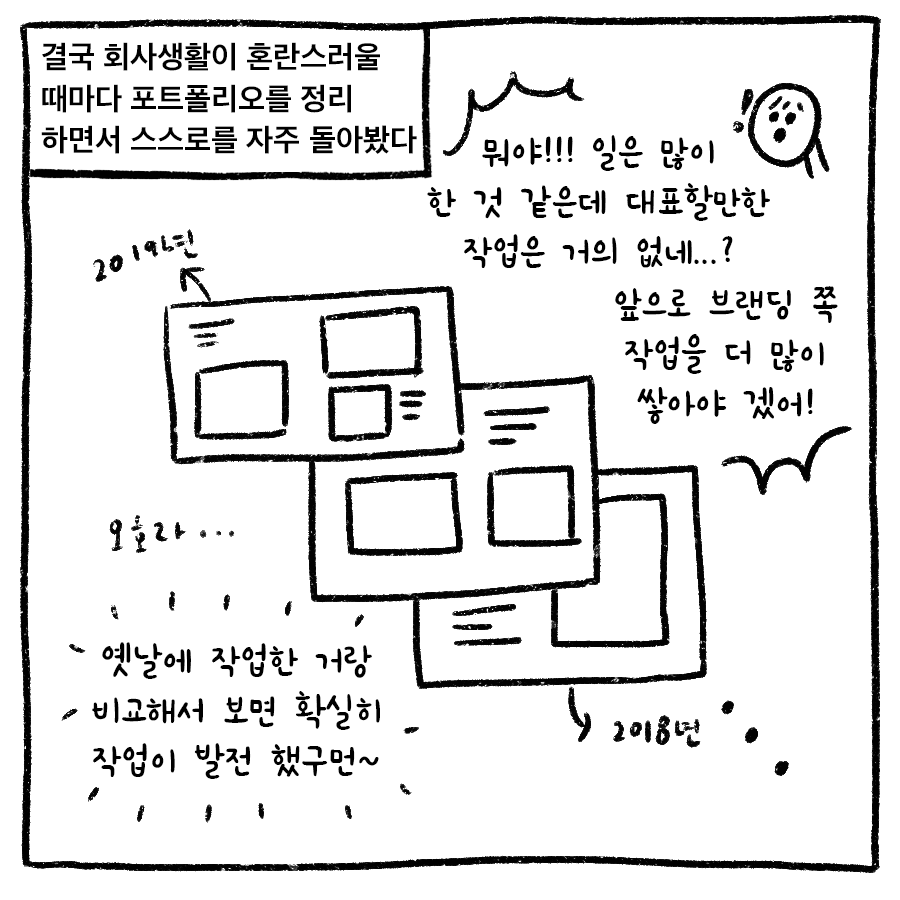 결국 회사생활이 혼란스러울
때마다 포트폴리오를 정리
하면서 스스로를 자주 돌아봤다
뭐야!!! 일은 많이
한 것 같은데 대표할만한
작업은 거의 없네...?
앞으로 브랜딩 쪽
작업을 더 많이
쌓아야 겠어!
2019년
오호라...
옛날에 작업한 거랑
비교해서 보면 확실히
작업이 발전 했구먼~
2018년